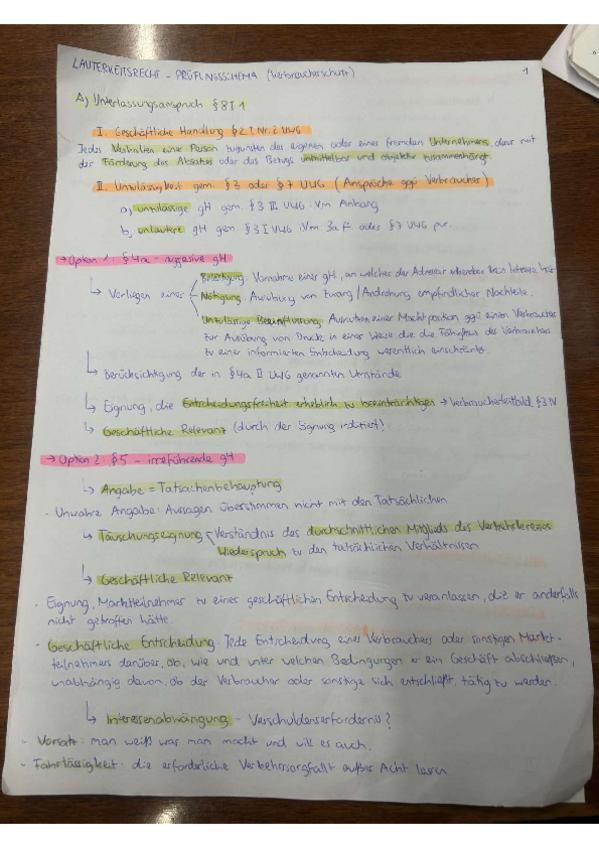 LAUTERKEITSRECHT - PRÜFUNGSSCHEMA (Verbraucherschutz)
1
A) Unterlassungsanspruch § 8 I 1
I. Geschäftliche Handlung § 2 I Nr. 2 UWG
Jedes Verhalten einer Person zugunsten des eigenen oder eines fremden Unternehmens, dass mit
der Förderung des Absatzes oder des Bezugs unmittelbar und objektiv zusammenhängt.
II. Unzulässigkeit gem. § 3 oder § 7 UWG (Ansprüche ggü Verbraucher)
a) unzulässige gH gem. § 3 III UWG iVm Anhang
b) unlautere gH gem. § 3 I UWG iVm 3a ff. oder § 7 UWG
→ Option 1: § 4a - aggresive gH
↳ Vorliegen einer
Belästigung: Vornahme einer gH, an welcher der Adressat erkennbar kein Interesse hat
Nötigung: Ausübung von Zwang/Androhung empfindlicher Nachteile.
Unzulässige Beeinflussung: Ausnutzen einer Machtposition ggü einem Verbraucher
zur Ausübung von Druck in einer Weise die die Fähigkeit des Verbrauchers
zu einer informierten Entscheidung wesentlich einschränkt.
↳ Berücksichtigung der in § 4a II UWG genannten Umstände
↳ Eignung, die Entscheidungsfreiheit erheblich zu beeinträchtigen → Verbraucherleitbild § 3 IV
↳ Geschäftliche Relevanz (durch der Eignung indiziert!)
→ Option 2: § 5 - irreführende gH
↳ Angabe = Tatsachenbehauptung
· Unwahre Angabe: Aussagen übereinstimmen nicht mit den Tatsächlichen
↳ Täuschungseignung Verständnis des durchschnittlichen Mitglieds des Verkehrskreises
Wiederspruch zu den tatsächlichen Verhältnissen
↳ Geschäftliche Relevanz
· Eignung, Marktteilnehmer zu einer geschäftlichen Entscheidung zu veranlassen, die er anderfalls
nicht getroffen hätte.
· Geschäftliche Entscheidung: Jede Entscheidung eines Verbrauchers oder sonstigen Markt-
teilnehmers darüber, ob, wie und unter welchen Bedingungen er ein Geschäft abschließen,
unabhängig davon, ob der Verbraucher oder sonstige sich entschließt, tätig zu werden.
↳ Interessenabwängung - Verschuldenserfordernis?
- Vorsatz: man weiß was man macht und will es auch.
- Fahrlässigkeit: die erforderliche Verkehrssorgfallt außer Acht lassen